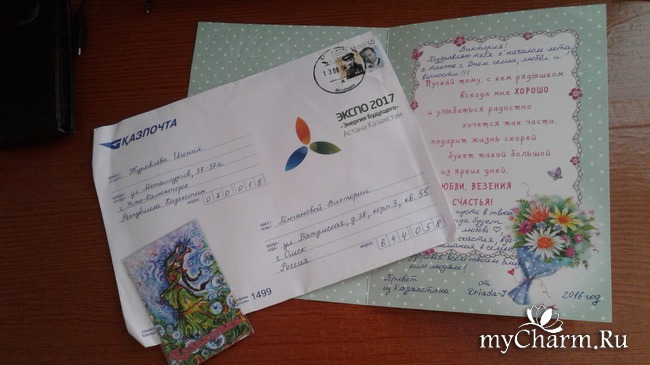 ҚАЗПОЧТА
ЭКСПО 2017
- Энергия Будущего -
Астана Казахстан
Журавлева Евгения
ул. Металлургов,
г. Усть-Каменогорск
Республика Казахстан
070018
Виктории
ул. Батумская, д. 28, корп 3, кв. 55
г. Омск
Россия
644058
1499
Виктория!
Поздравляю тебя с началом лета,
а также с Днем семьи, любви и
верности!!!
Пускай тому, с кем рядышком
всегда мне ХОРОШО
и улыбаться радостно
хочется так часто,
подарит жизнь скорей
букет такой большой
из ярких дней,
ЛЮБВИ, ВЕЗЕНИЯ
СЧАСТЬЯ!
пусть в твоей
будет
любовь
счастья,
Привет от
из Казахстана Driada-J
2016 год
myCharm.Ru